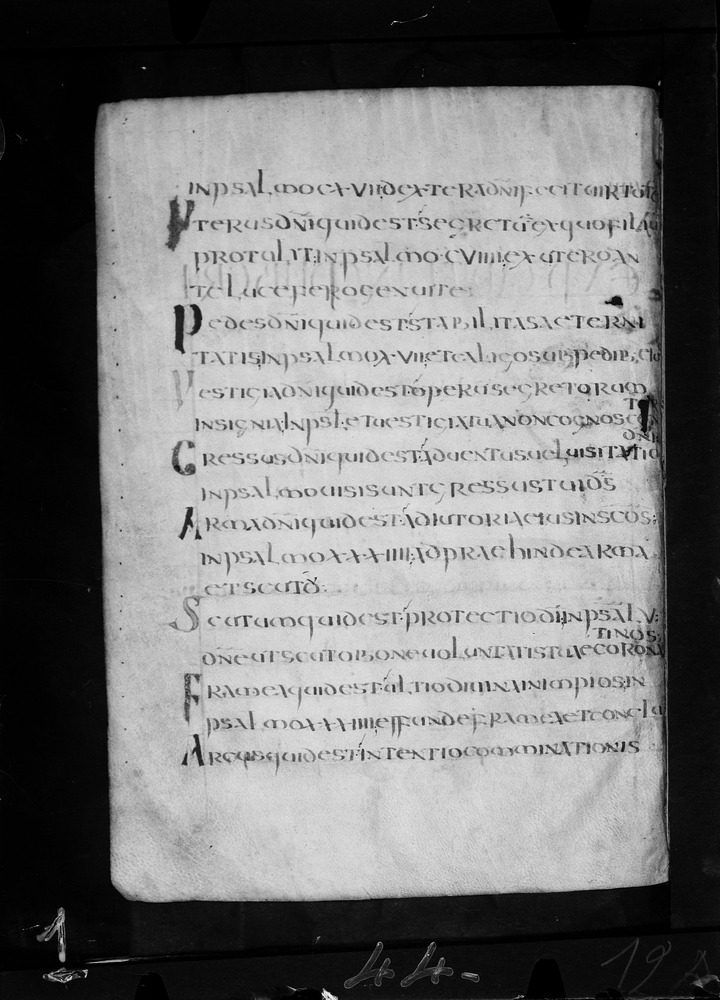 INPSALMOCXVIIDEXTERADNIFECITUIRTUTE
UTERUSDNIQUIDESTSECRETUEXQUOFILIU
PROTULITINPSALMOCVIIIIEXUTEROAN
TELUCEFERO
PEDESDNIQUIDESTSTABILITASAETERNI
TATISINPSALMOXVIIETCALIGOSUBPEDIB;EIU
UESTIGIADNIQUIDESTOPERUSECRETORUM
INSIGNIAINPSLETUESTIGIATUANONCOGNOSCEN
TUR
GRESSUSDNIQUIDESTADUENTUSUELUISITATIO
DNI
INPSALMOUISISUNTGRESSUSTUIDS
ARMADNIQUIDESTADIUTORIAEIUSINSCOS:
INPSALMOXXXIIIIADPRAEHINDEARMA
ETSCUTU
SCUTUMQUIDESTPROTECTIODIINPSALV:
DNEUTSCUTOBONEUOLUNTATISTUAECORONA
TINOS:
FRAMEAQUIDESTULTIODIUINAINIMPIOSIN
PSALMOXXXIIIIEFFUNDEFRAMEAETCONCLU
ARCUSQUIDESTINTENTIOCOMMINATIONIS
1
44-